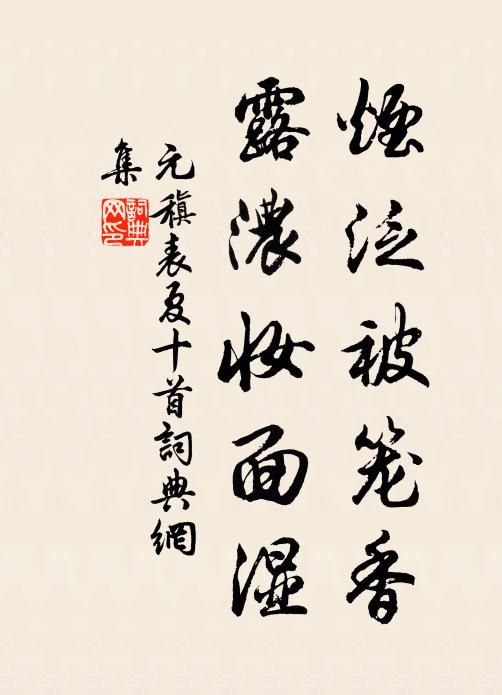 煙泛被笼香
露濃妝面湿
元稹表夏十首詞典網
集
詞典
网印